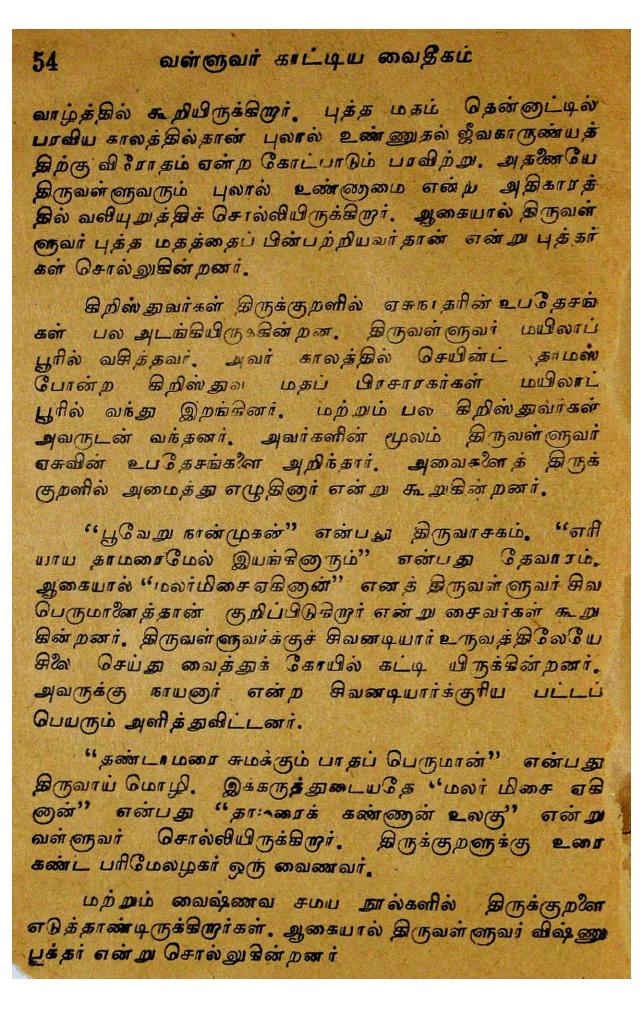 54 வள்ளுவர் காட்டிய வைதீகம்
வாழ்த்தில் கூறியிருக்கிறார். புத்த மதம் தென்னாட்டில்
பரவிய காலத்தில்தான் புலால் உண்ணுதல் ஜீவகாருண்யத்
திற்கு விரோதம் என்ற கோட்பாடும் பரவிற்று. அதனையே
திருவள்ளுவரும் புலால் உண்ணாமை என்ற அதிகாரத்
தில் வலியுறுத்திச் சொல்லியிருக்கிறார். ஆகையால் திருவள்
ளுவர் புத்த மதத்தைப் பின்பற்றியவர்தான் என்று புத்தர்
கள் சொல்லுகின்றனர்.
கிறிஸ்துவர்கள் திருக்குறளில் ஏசுநாதரின் உபதேசங்
கள் பல அடங்கியிருக்கின்றன. திருவள்ளுவர் மயிலாப்
பூரில் வசித்தவர். அவர் காலத்தில் செயின்ட் தாமஸ்
போன்ற கிறிஸ்துவ மதப் பிரசாரகர்கள் மயிலாட்
பூரில் வந்து இறங்கினர். மற்றும் பல கிறிஸ்துவர்கள்
அவருடன் வந்தனர். அவர்களின் மூலம் திருவள்ளுவர்
ஏசுவின் உபதேசங்களை அறிந்தார். அவைகளைத் திருக்
குறளில் அமைத்து எழுதினார் என்று கூறுகின்றனர்.
“பூவேறு நான்முகன்” என்பது திருவாசகம். “எரி
யாய தாமரைமேல் இயங்கினாரும்” என்பது தேவாரம்.
ஆகையால் “மலர்மிசை ஏகினான்” எனத் திருவள்ளுவர் சிவ
பெருமானைத்தான் குறிப்பிடுகிறார் என்று சைவர்கள் கூறு
கின்றனர். திருவள்ளுவர்க்குச் சிவனடியார் உருவத்திலேயே
சிலை செய்து வைத்துக் கோயில் கட்டி யிருக்கின்றனர்.
அவருக்கு நாயனார் என்ற சிவனடியார்க்குரிய பட்டப்
பெயரும் அளித்துவிட்டனர்.
“தண்டாமரை சுமக்கும் பாதப் பெருமான்” என்பது
திருவாய் மொழி. இக்கருத்துடையதே “மலர் மிசை ஏகி
னான்” என்பது “தாமரைக் கண்ணான் உலகு” என்று
வள்ளுவர் சொல்லியிருக்கிறார். திருக்குறளுக்கு உரை
கண்ட பரிமேலழகர் ஒரு வைணவர்.
மற்றும் வைஷ்ணவ சமய நூல்களில் திருக்குறளை
எடுத்தாண்டிருக்கிறார்கள். ஆகையால் திருவள்ளுவர் விஷ்ணு
பக்தர் என்று சொல்லுகின்றனர்